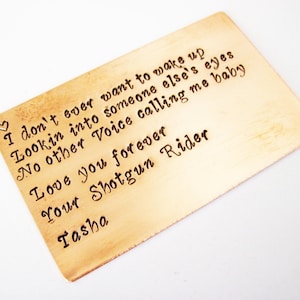 ♡
I don't ever want to wake up
Lookin into someone else's eyes
No other Voice calling me baby
Love you forever
Your Shotgun Rider
Tasha